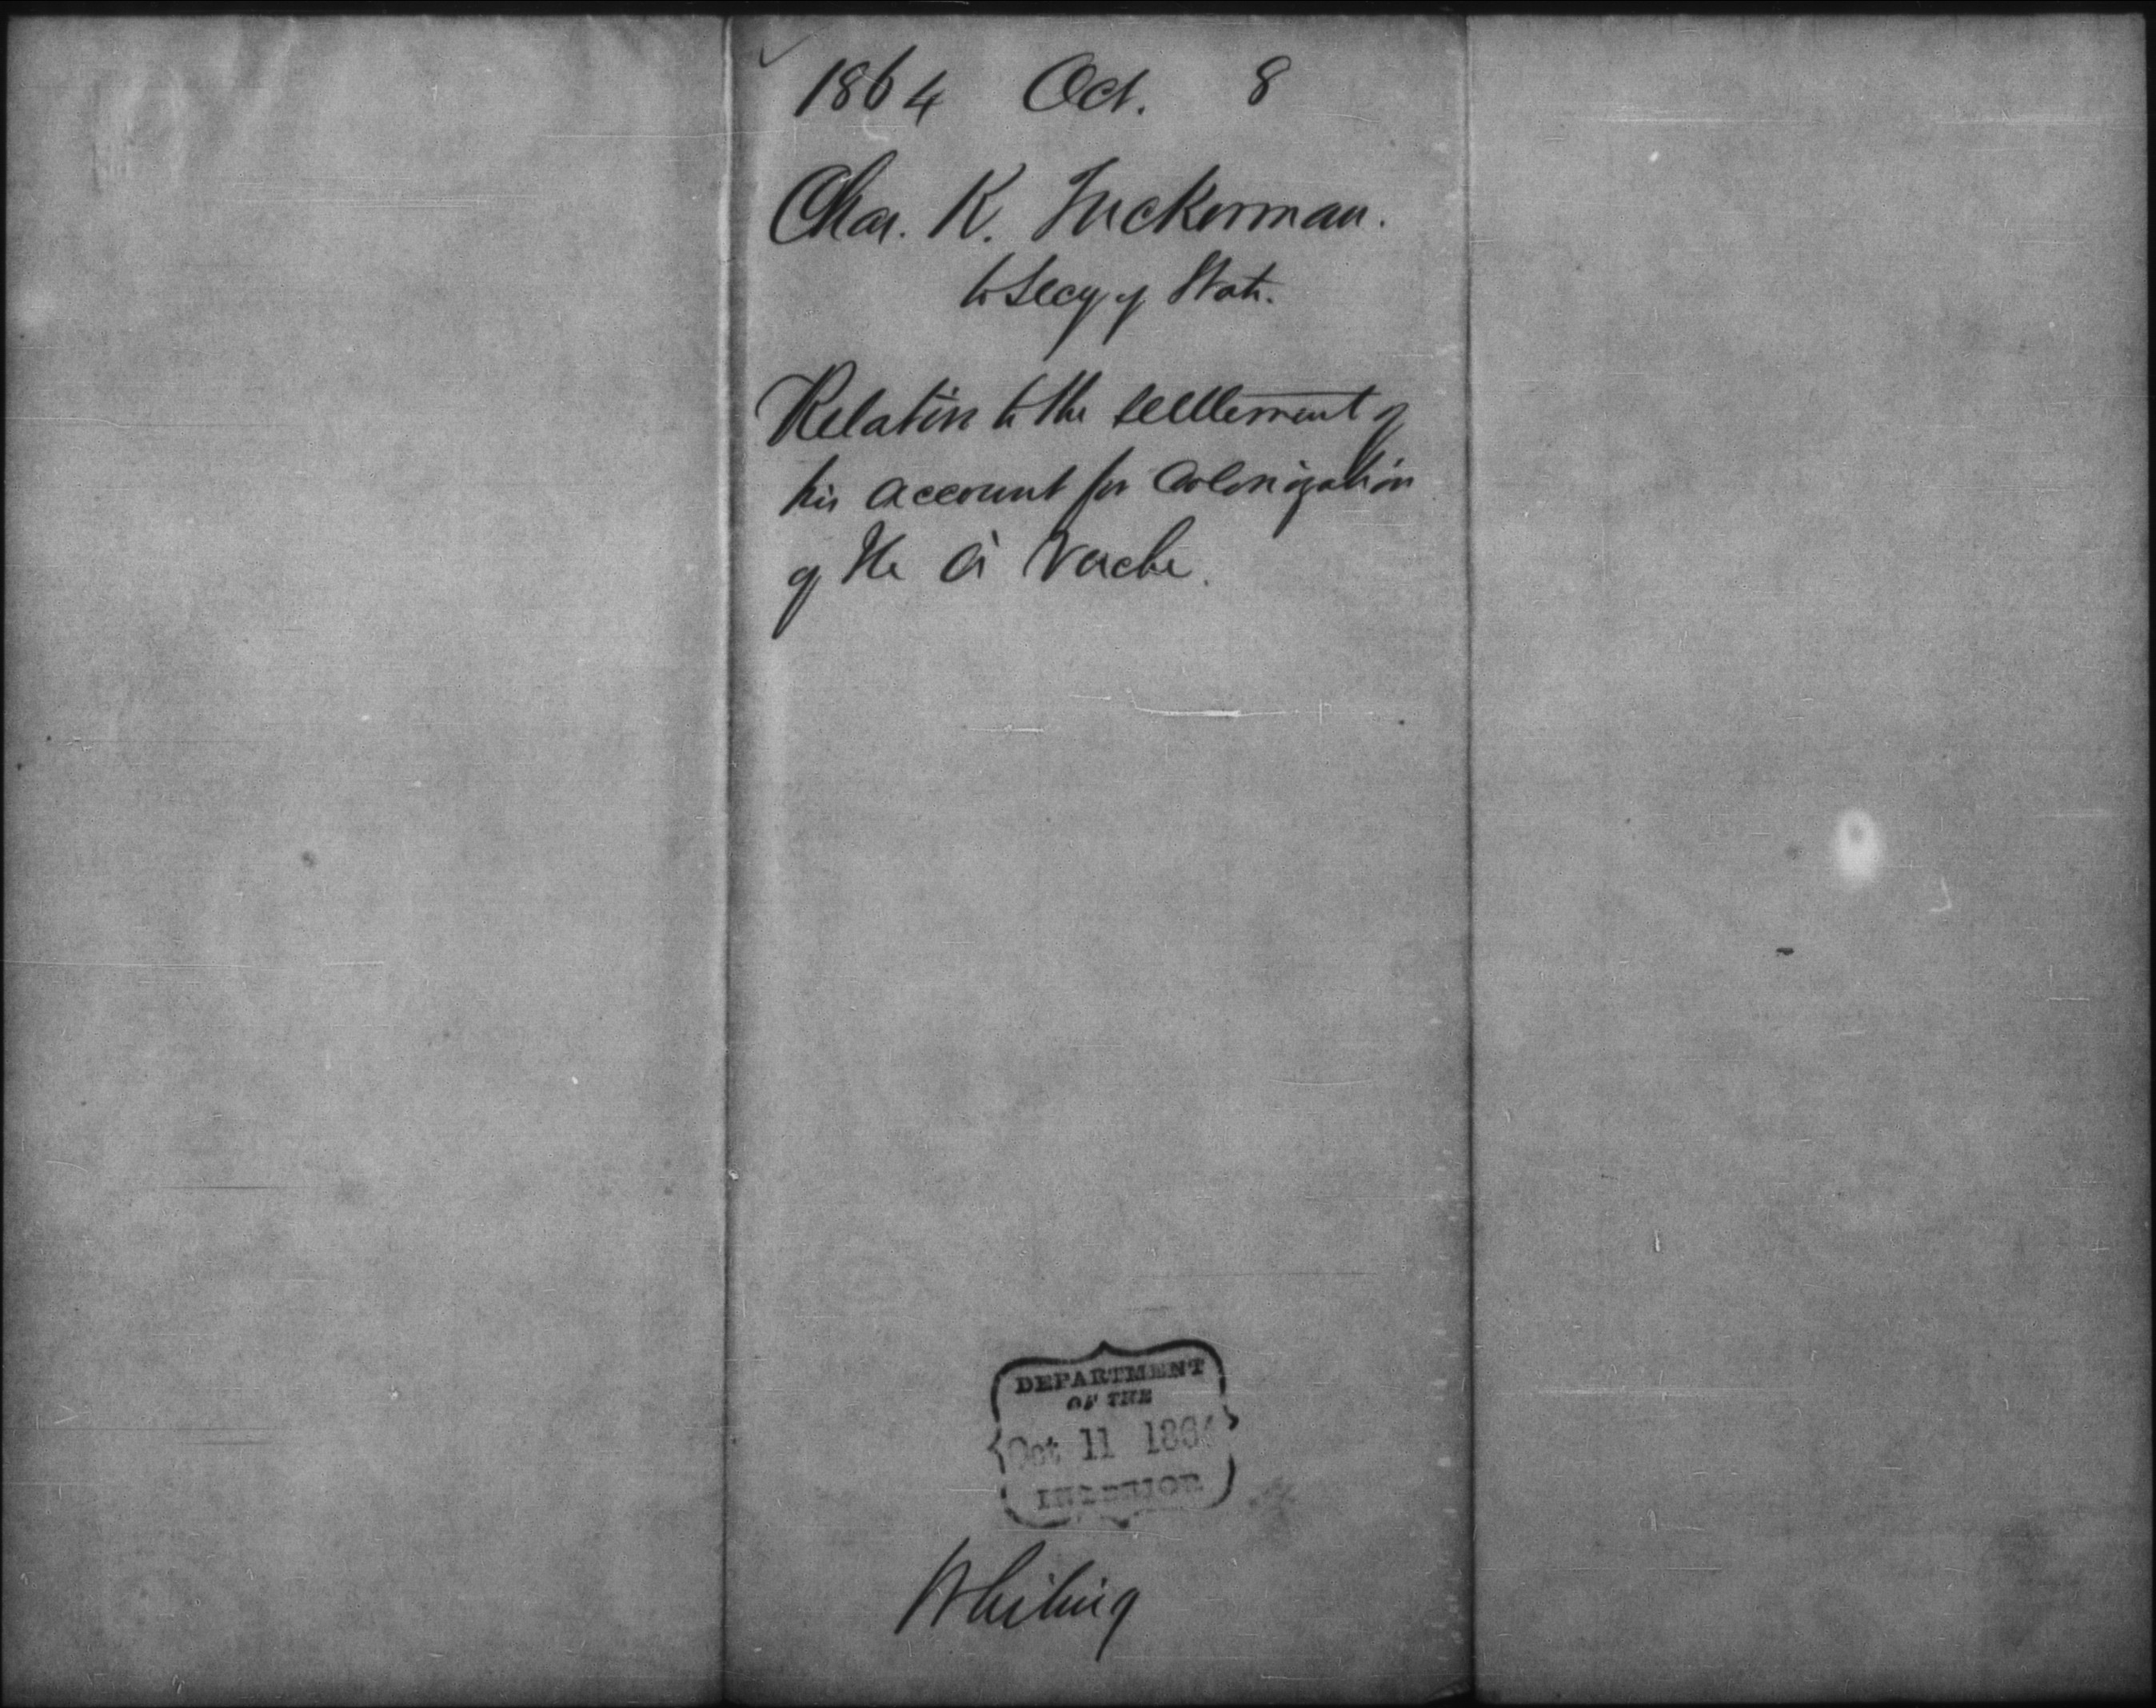 1864 Oct. 8
Chas. K. Tuckerman.
to Secy of State.
Relative to the settlement of
his account for Colonization
of Ile à Vache.
DEPARTMENT
OF THE
Oct 11 1864
INTERIOR
Whiting